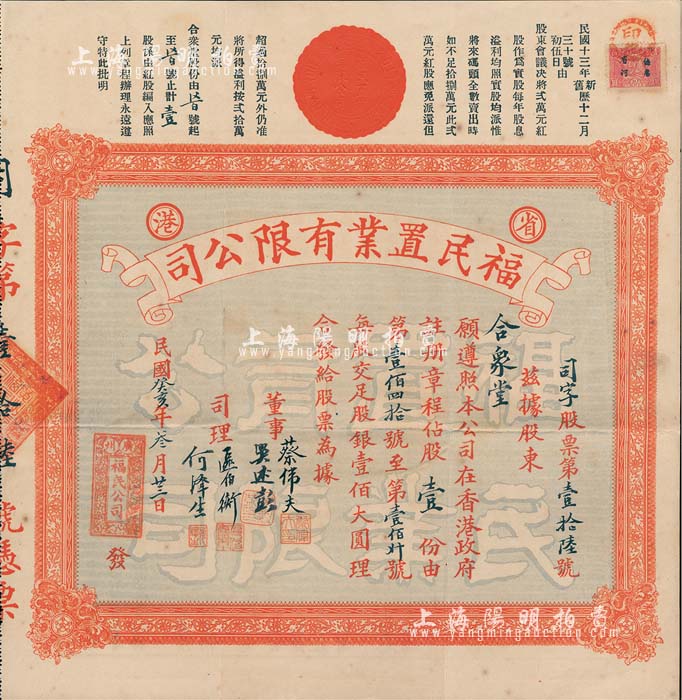 民國十三年新舊歷十二月
三十號由
初伍日
股東會議决將弍萬元紅
股作爲實股每年股息
溢利均照實股均派惟
將來碼頭全數賣出時
如不足拾捌萬元此弍
萬元紅股應免派還但
超過拾捌萬元外仍准
將所得溢利按弍拾萬
元均派
合衆堂股份由
號起
至
號止計壹
股係由紅股編入應照
上列章程辦理永遠遵
守特此批明
省港
福民置業有限公司
司字股票第壹拾陸號
茲據股東
合衆堂
願遵照本公司在香港政府
註册章程佔股壹份由
第壹佰四拾號至第壹佰卅號
每股交足股銀壹佰大圓理
合發給股票為據
董事
蔡偉夫
吴述彭
司理
區伯衡
何澤生
民國癸亥年叁月廿三日
發
福民公司
福置有公
民業限司
字第壹拾陸號憑票
上海陽明拍賣
www.yangmingauction.com
上海陽明拍賣
www.yangmingauction.com
上海陽明拍賣
www.yangmingauction.com